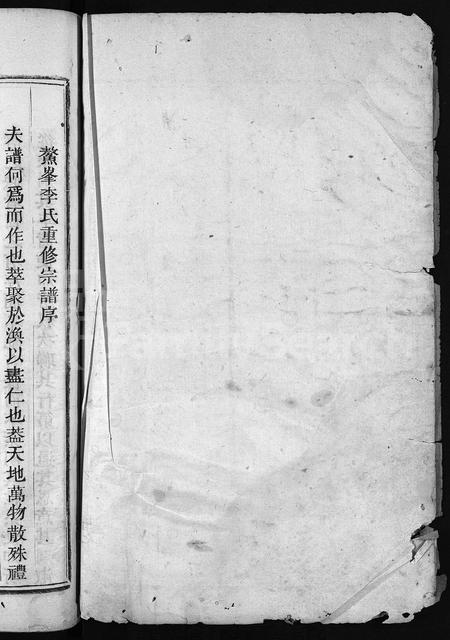 鰲峯李氏重修宗譜序
夫譜何爲而作也萃聚於渙以盡仁也葢天地萬物散殊禮
FamilySearch